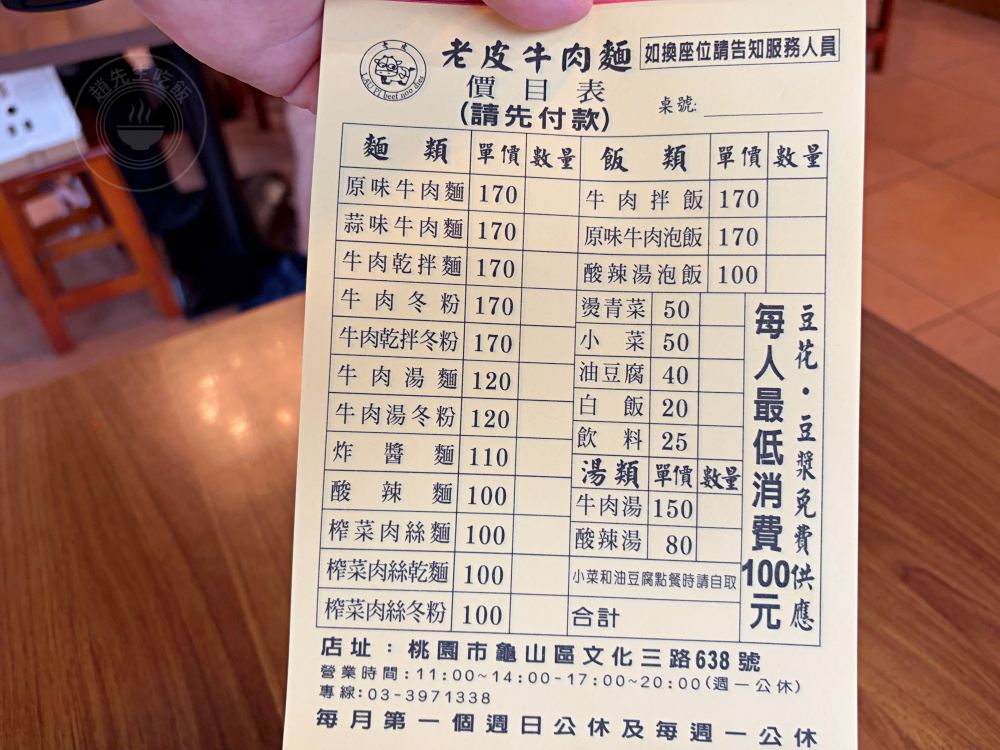 趙先生吃飯
老皮
LAU PI beef noodles
老皮牛肉麵
如換座位請告知服務人員
價目表
(請先付款)
桌號:
麵類 單價 數量 飯類 單價 數量
原味牛肉麵 170 牛肉拌飯 170
蒜味牛肉麵 170 原味牛肉泡飯 170
牛肉乾拌麵 170 酸辣湯泡飯 100
牛肉冬粉 170 燙青菜 50
牛肉乾拌冬粉 170 小菜 50
牛肉湯麵 120 油豆腐 40
牛肉湯冬粉 120 白飯 20
炸醬麵 110 飲料 25
酸辣麵 100 湯類 單價 數量
榨菜肉絲麵 100 牛肉湯 150
榨菜肉絲乾麵 100 酸辣湯 80
榨菜肉絲冬粉 100 小菜和油豆腐點餐時請自取
合計
豆花・豆漿免費供應
每人最低消費100元
店址：桃園市龜山區文化三路638號
營業時間:11:00~14:00-17:00~20:00(週一公休)
專線:03-3971338
每月第一個週日公休及每週一公休